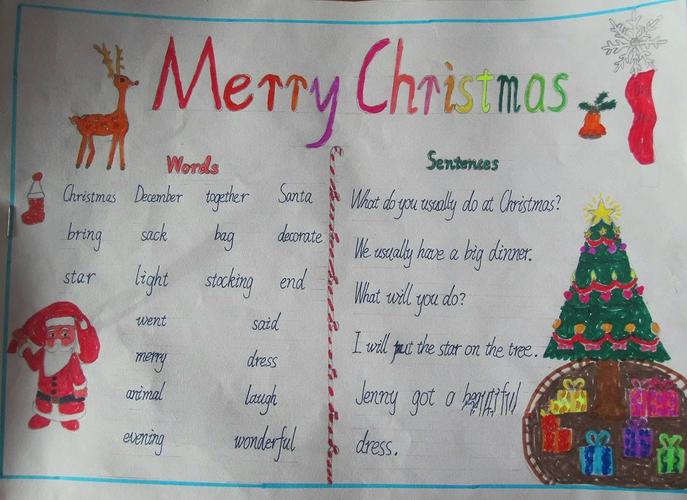 Merry Christmas
Words
Christmas December together Santa
bring sack bag decorate
star light stocking end
went said
merry dress
animal laugh
evening wonderful
Sentences
What do you usually do at Christmas?
We usually have a big dinner.
What will you do?
I will put the star on the tree.
Jenny got a beautiful
dress.